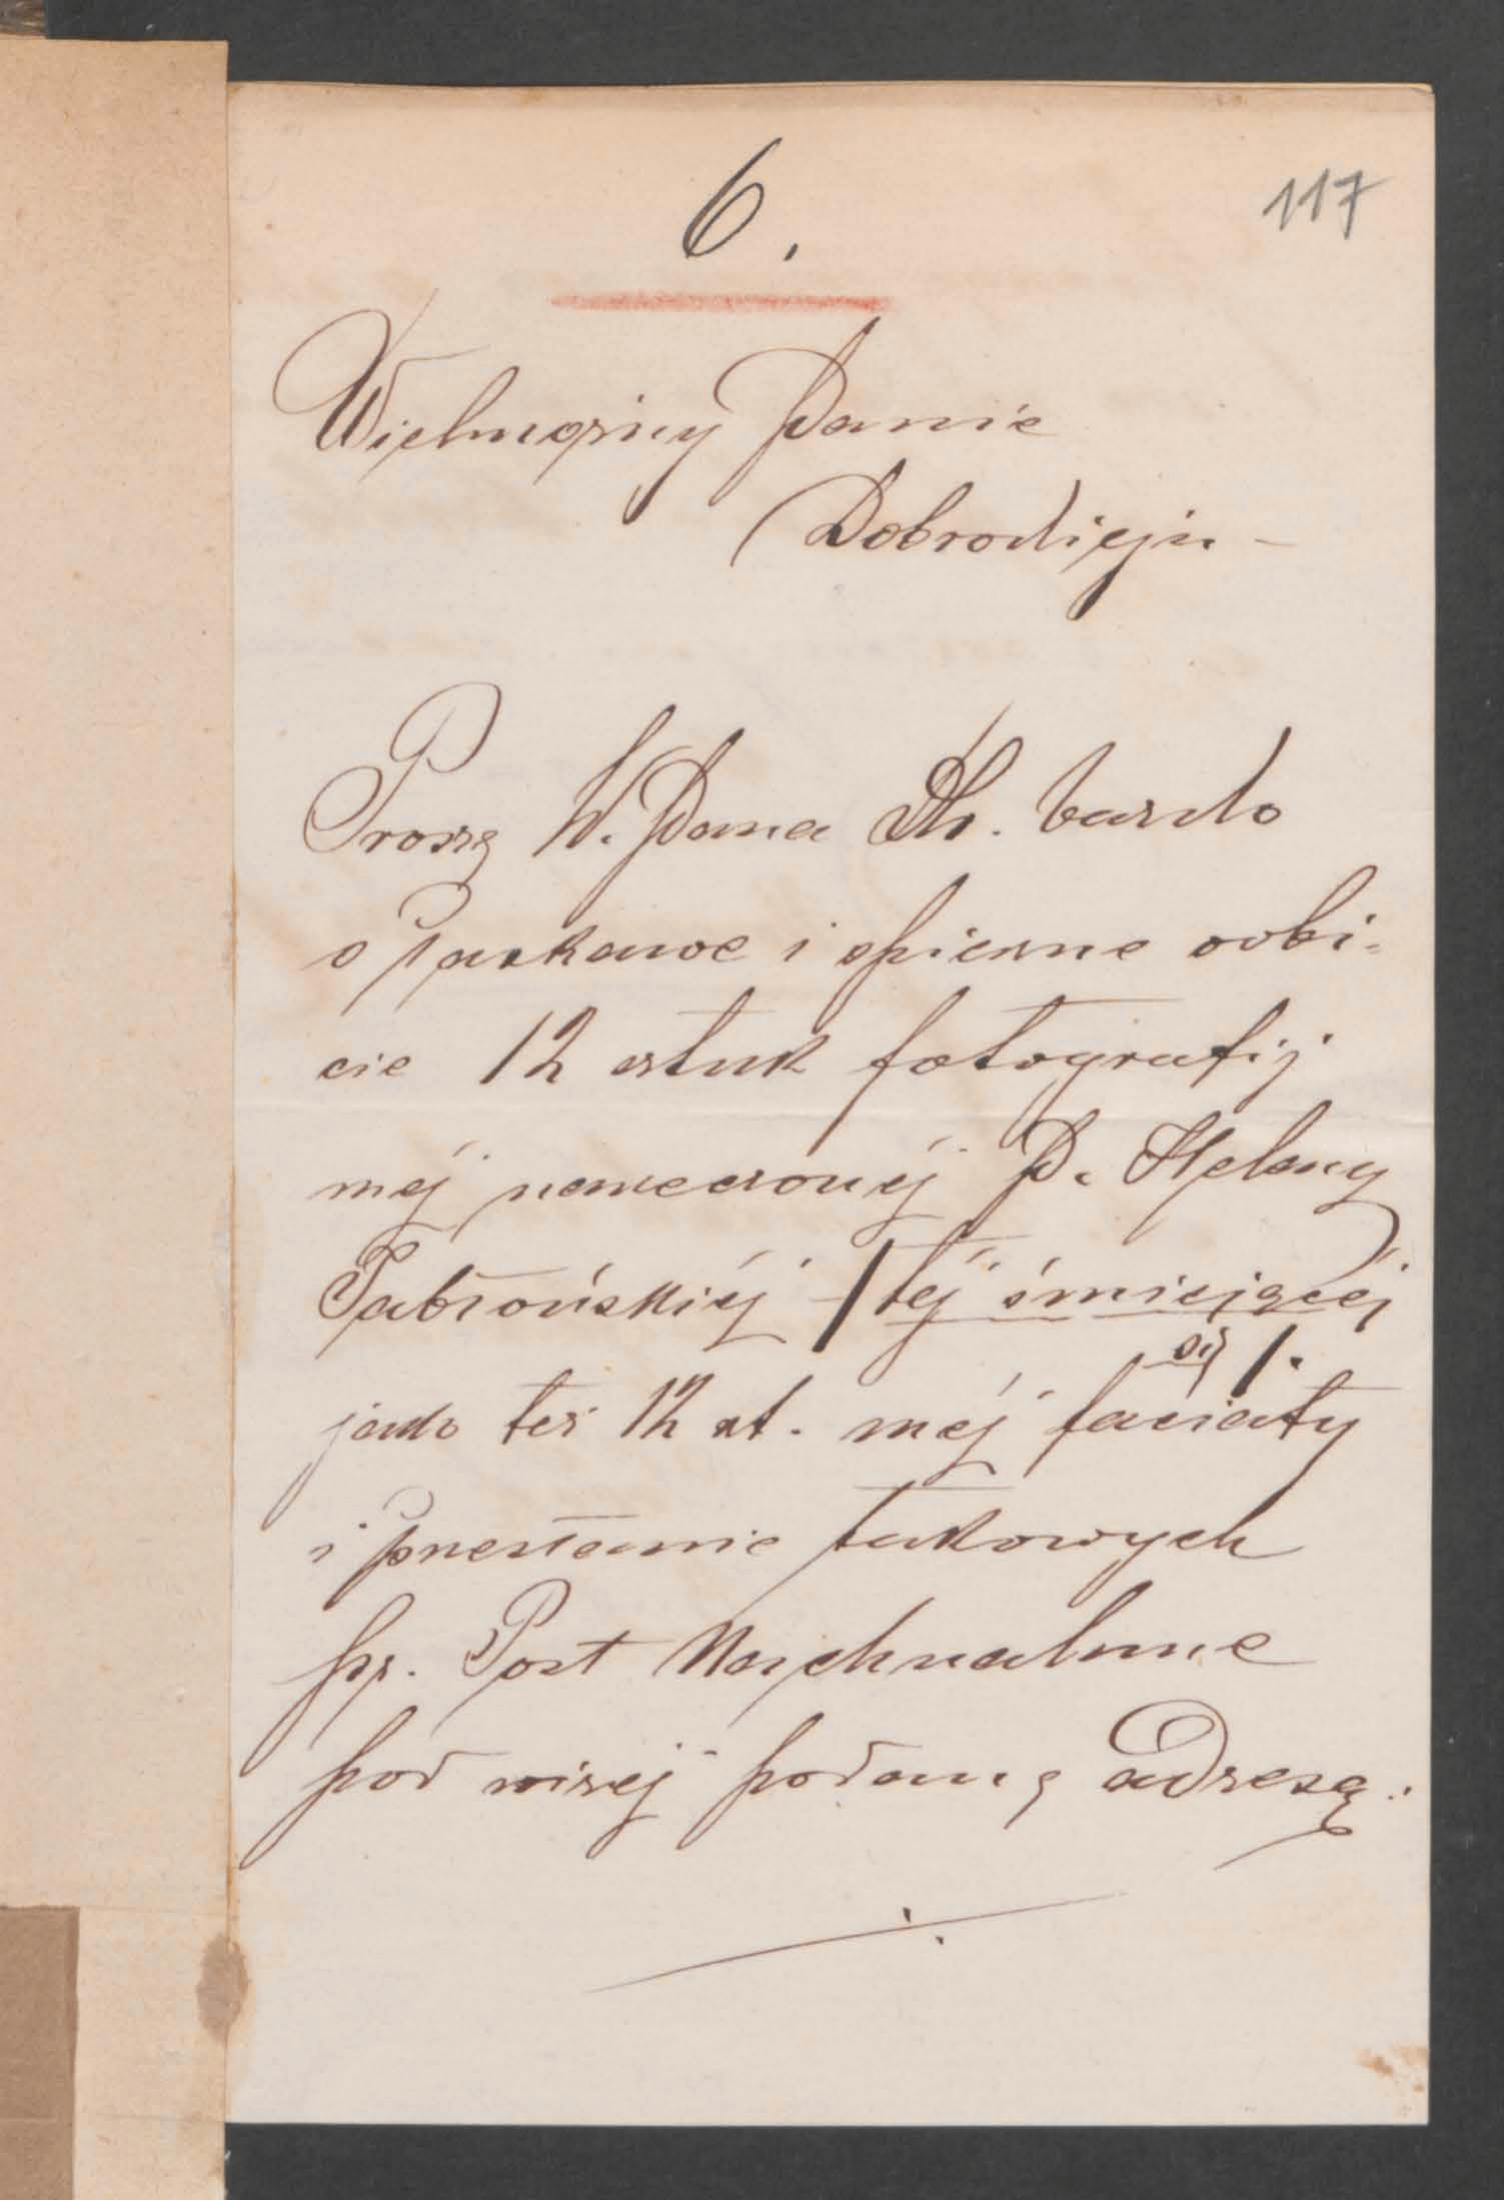 117
6.
Wielmożny Panie
Dobrodzieju –
Proszę W. Pana Db. bardzo
o łaskawe i spieszne odbi-
cie 12 sztuk fotografij
mej narzeczonéj P. Heleny
Jabłońskiéj /téj śmiejącéj
się/.
jako też 12 szt. méj faciaty
i przesłanie takowych
pr. Post Nachnahme
pod niżéj podaną adresą.